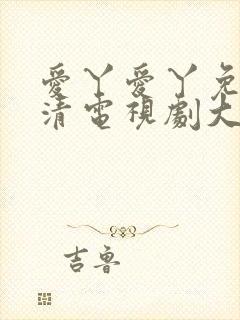 愛丫愛丫免
清電視劇大
吉魯